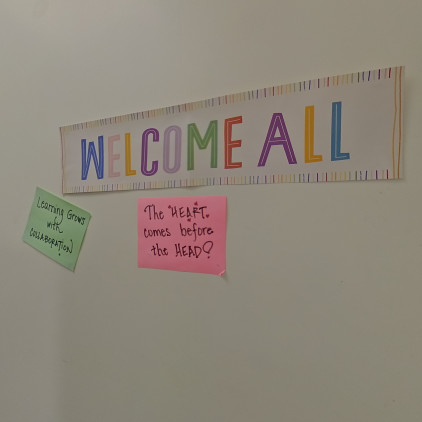 WELCOME ALL
Learning Grows
with
COLLABORATION
The "HEART"
comes before
the HEAD!